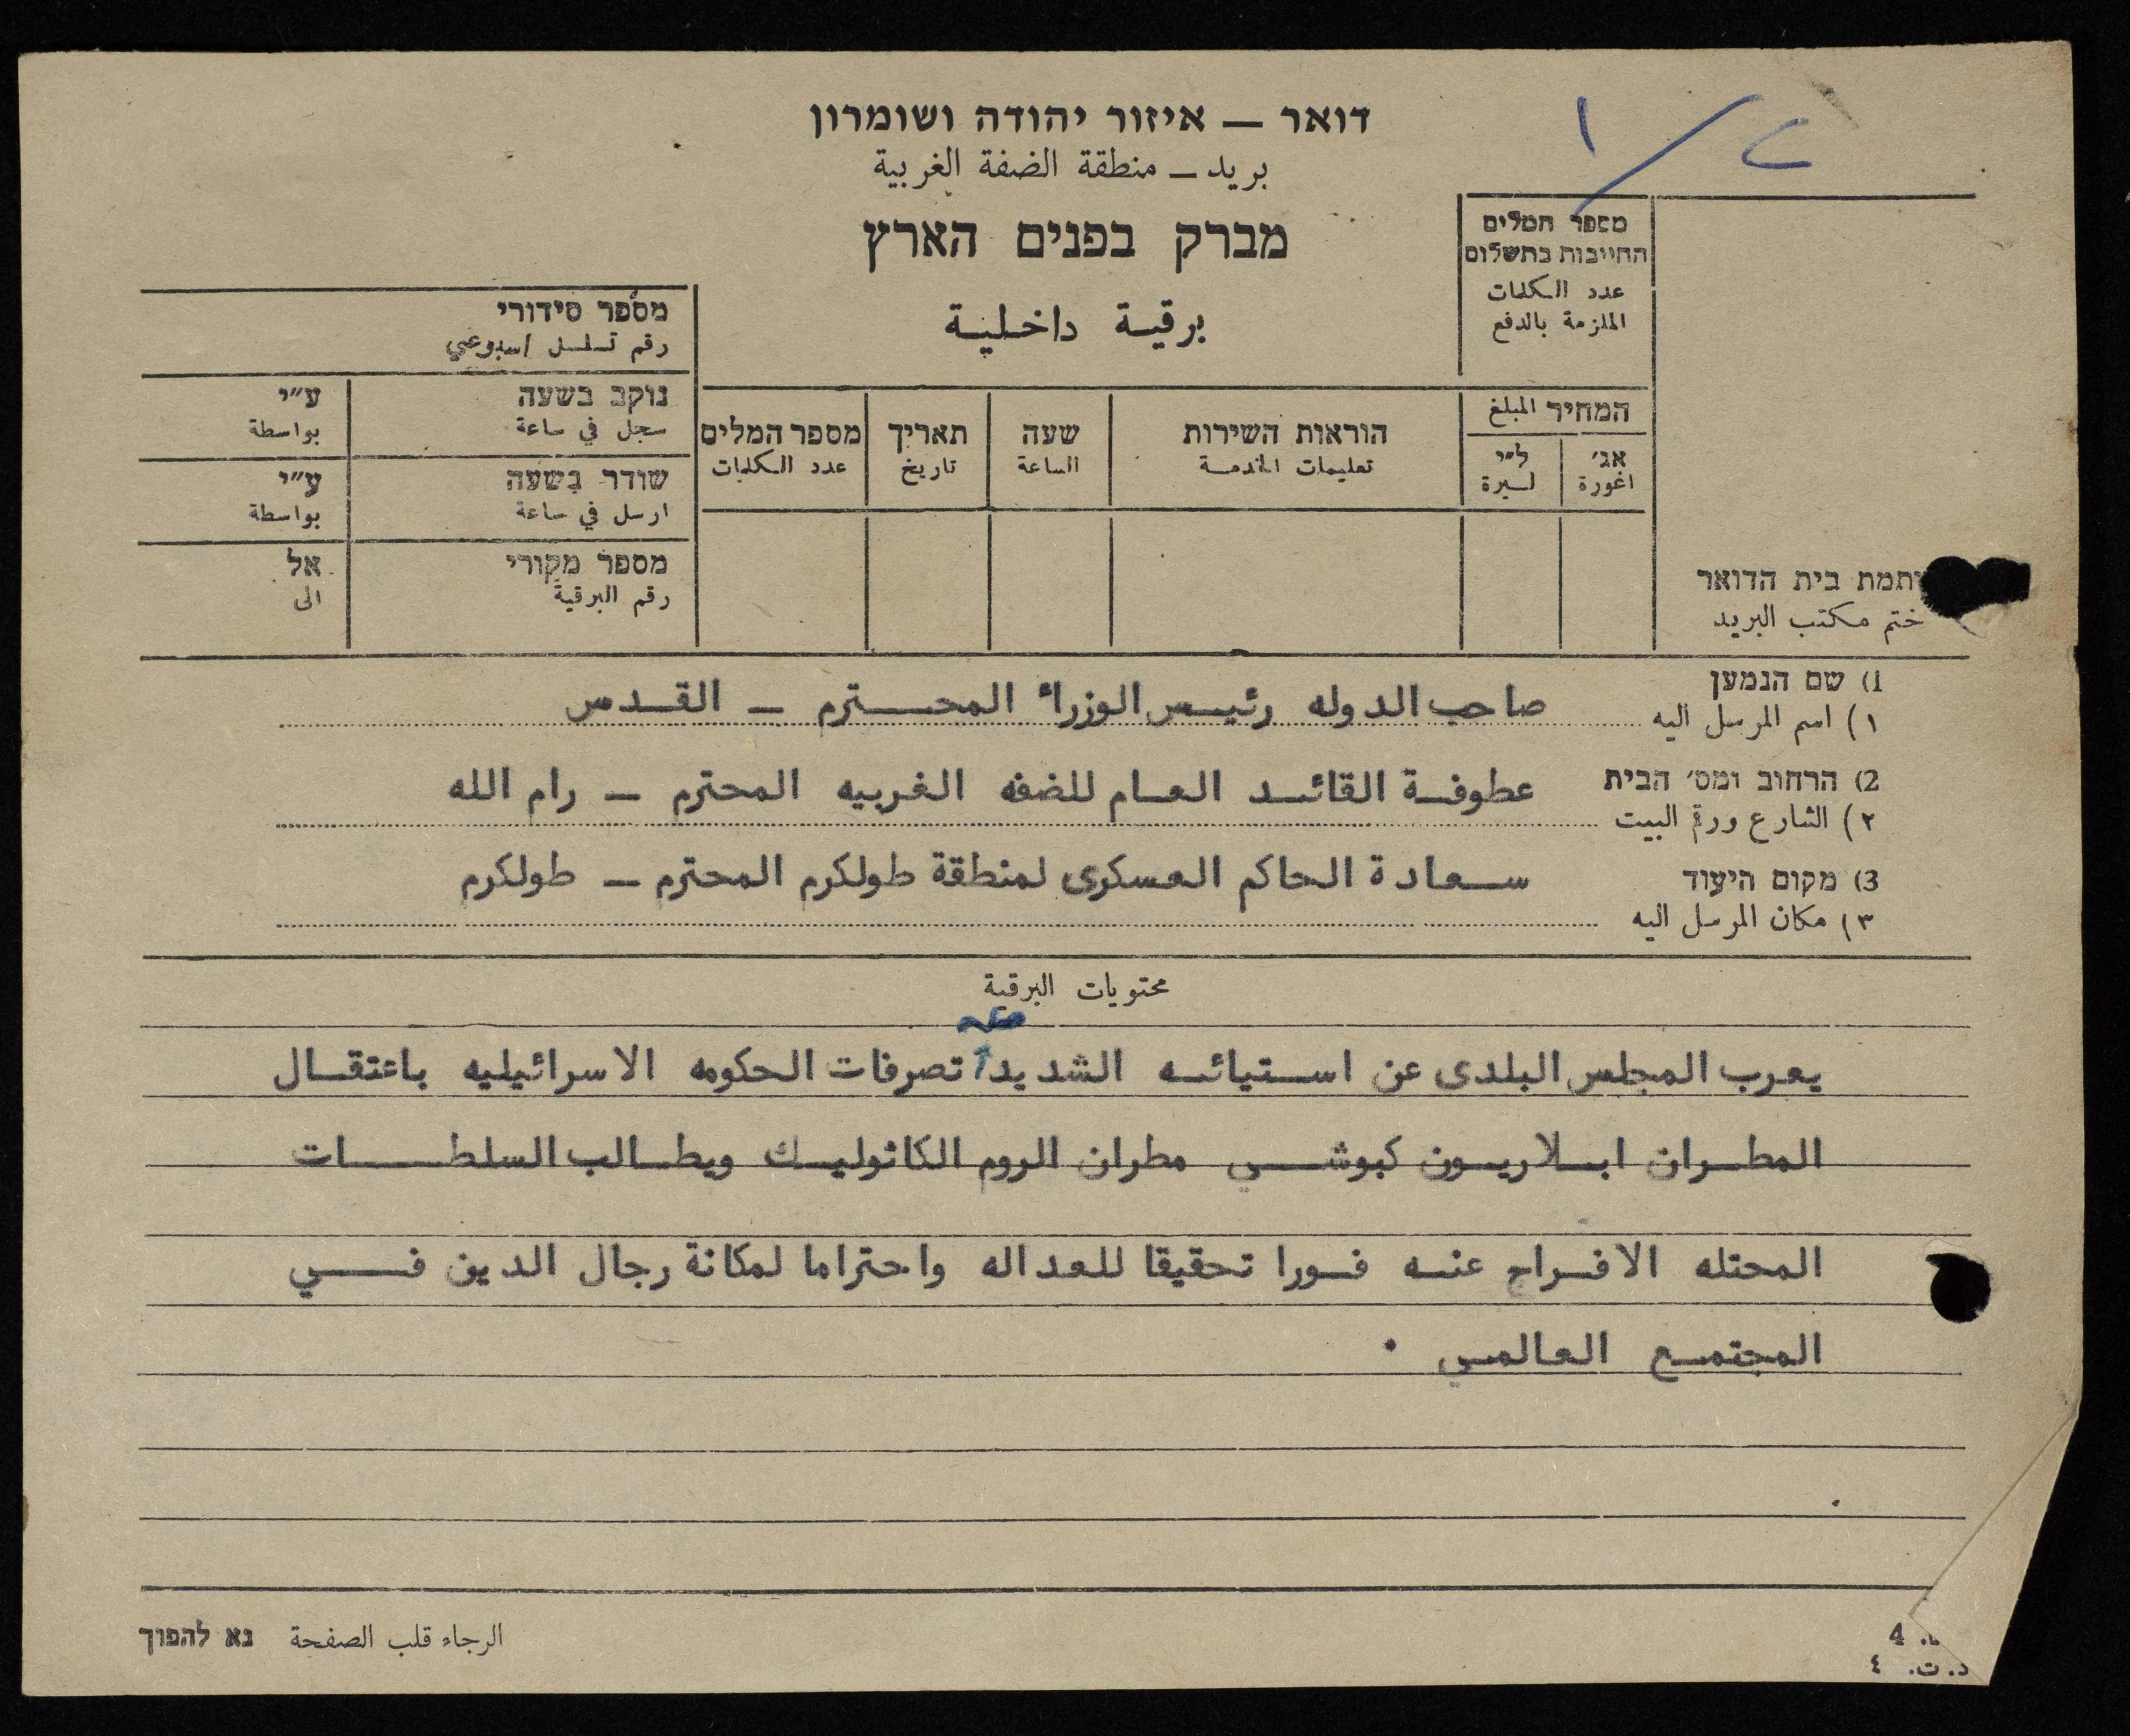 דואר — איזור יהודה ושומרון
بريد — منطقة الضفة الغربية
מברק בפנים הארץ
برقية داخلية
מספר המלים
החייבות בתשלום
عدد الكلمات
الملزمة بالدفع
המחיר المبلغ
אג׳ ל״י
اغورة ليرة
הוראות השירות
تعليمات الخدمة
שעה
الساعة
תאריך
تاريخ
מספר המלים
عدد الكلمات
מספר סידורי
رقم تسلسل اسبوعي
נוקב בשעה ע״י
سجل في ساعة بواسطة
שודר בשעה ע״י
ارسل في ساعة بواسطة
מספר מקורי אל
رقم البرقية الى
חתמת בית הדואר
ختم مكتب البريد
1) שם הנמען
١) اسم المرسل اليه صاحب الدوله رئيس الوزراء المحترم — القدس
2) הרחוב ומס׳ הבית
٢) الشارع ورقم البيت عطوفة القائد العام للضفه الغربيه المحترم — رام الله
3) מקום היעוד
٣) مكان المرسل اليه سعادة الحاكم العسكرى لمنطقة طولكرم المحترم — طولكرم
محتويات البرقية
يعرب المجلس البلدى عن استيائه الشديد تصرفات الحكومه الاسرائيليه باعتقال
المطران ايلاريون كبوشي مطران الروم الكاثوليك ويطالب السلطات
المحتله الافراج عنه فورا تحقيقا للعداله واحتراما لمكانة رجال الدين في
المجتمع العالمي .
الرجاء قلب الصفحة נא להפוך
4
د. ت. ٤